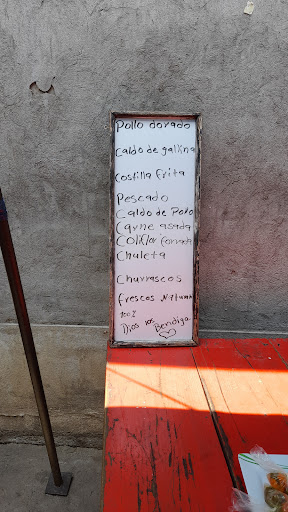 Pollo dorado
Caldo de gallina
Costilla frita
Pescado
Caldo de Pollo
Carne asada
Coliflor forrada
Chuleta
Churrascos
frescos Natural
100%
Dios los Bendiga